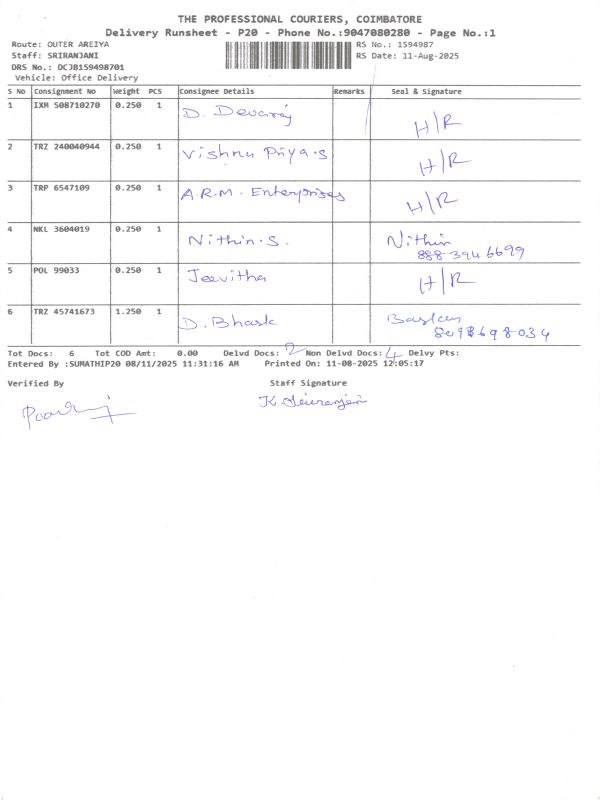 THE PROFESSIONAL COURIERS, COIMBATORE
Delivery Runsheet - P20 - Phone No.:9047080280 - Page No.:1
Route: OUTER AREIYA RS No.: 1594987
Staff: SRIRANJANI RS Date: 11-Aug-2025
DRS No.: DCJB159498701
Vehicle: Office Delivery
S No Consignment No Weight PCS Consignee Details Remarks Seal & Signature
1 IXM 508710270 0.250 1 D. Devaraj H/R
2 TRZ 240040944 0.250 1 Vishnu Priya.S H/R
3 TRP 6547109 0.250 1 A.R.M. Enterprises H/R
4 NKL 3604019 0.250 1 Nithin.S. Nithin
888 394 6699
5 POL 99033 0.250 1 Jeevitha H/R
6 TRZ 45741673 1.250 1 D. Bhask
Tot Docs: 6 Tot COD Amt: 0.00 Delvd Docs: 2 Non Delvd Docs: 4 Delvy Pts:
Entered By :SUMATHIP20 08/11/2025 11:31:16 AM Printed On: 11-08-2025 12:05:17
Verified By Staff Signature